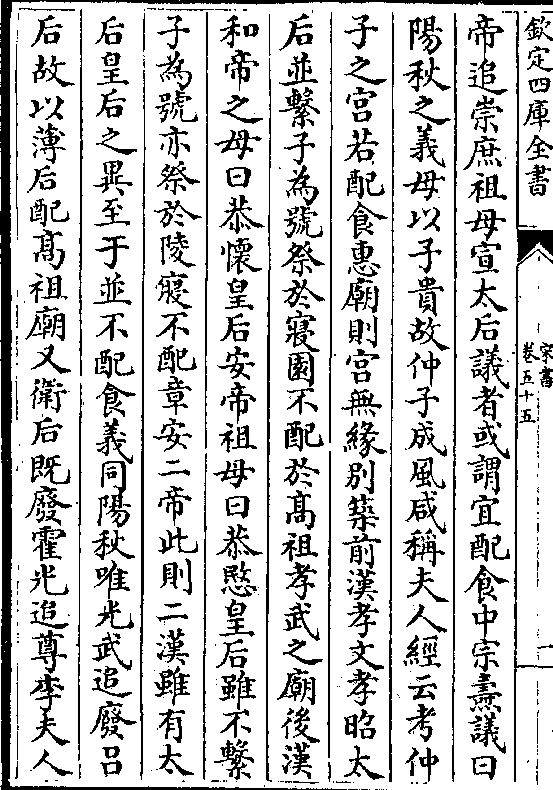 欽定四庫全書
宋書
卷五十五
帝追崇庶祖母宣太后議者或謂宜配食中宗燾議曰
陽秋之義母以子貴故仲子成風咸稱夫人經云考仲
子之宫若配食惠廟則宫無緣别築前漢孝文孝昭太
后並繫子為號祭於寢園不配於髙祖孝武之廟後漢
和帝之母曰恭懷皇后安帝祖母曰恭愍皇后雖不繫
子為號亦祭於陵寢不配章安二帝此則二漢雖有太
后皇后之異至于並不配食義同陽秋唯光武追廢吕
后故以薄后配髙祖廟又衛后既廢霍光追尊李夫人